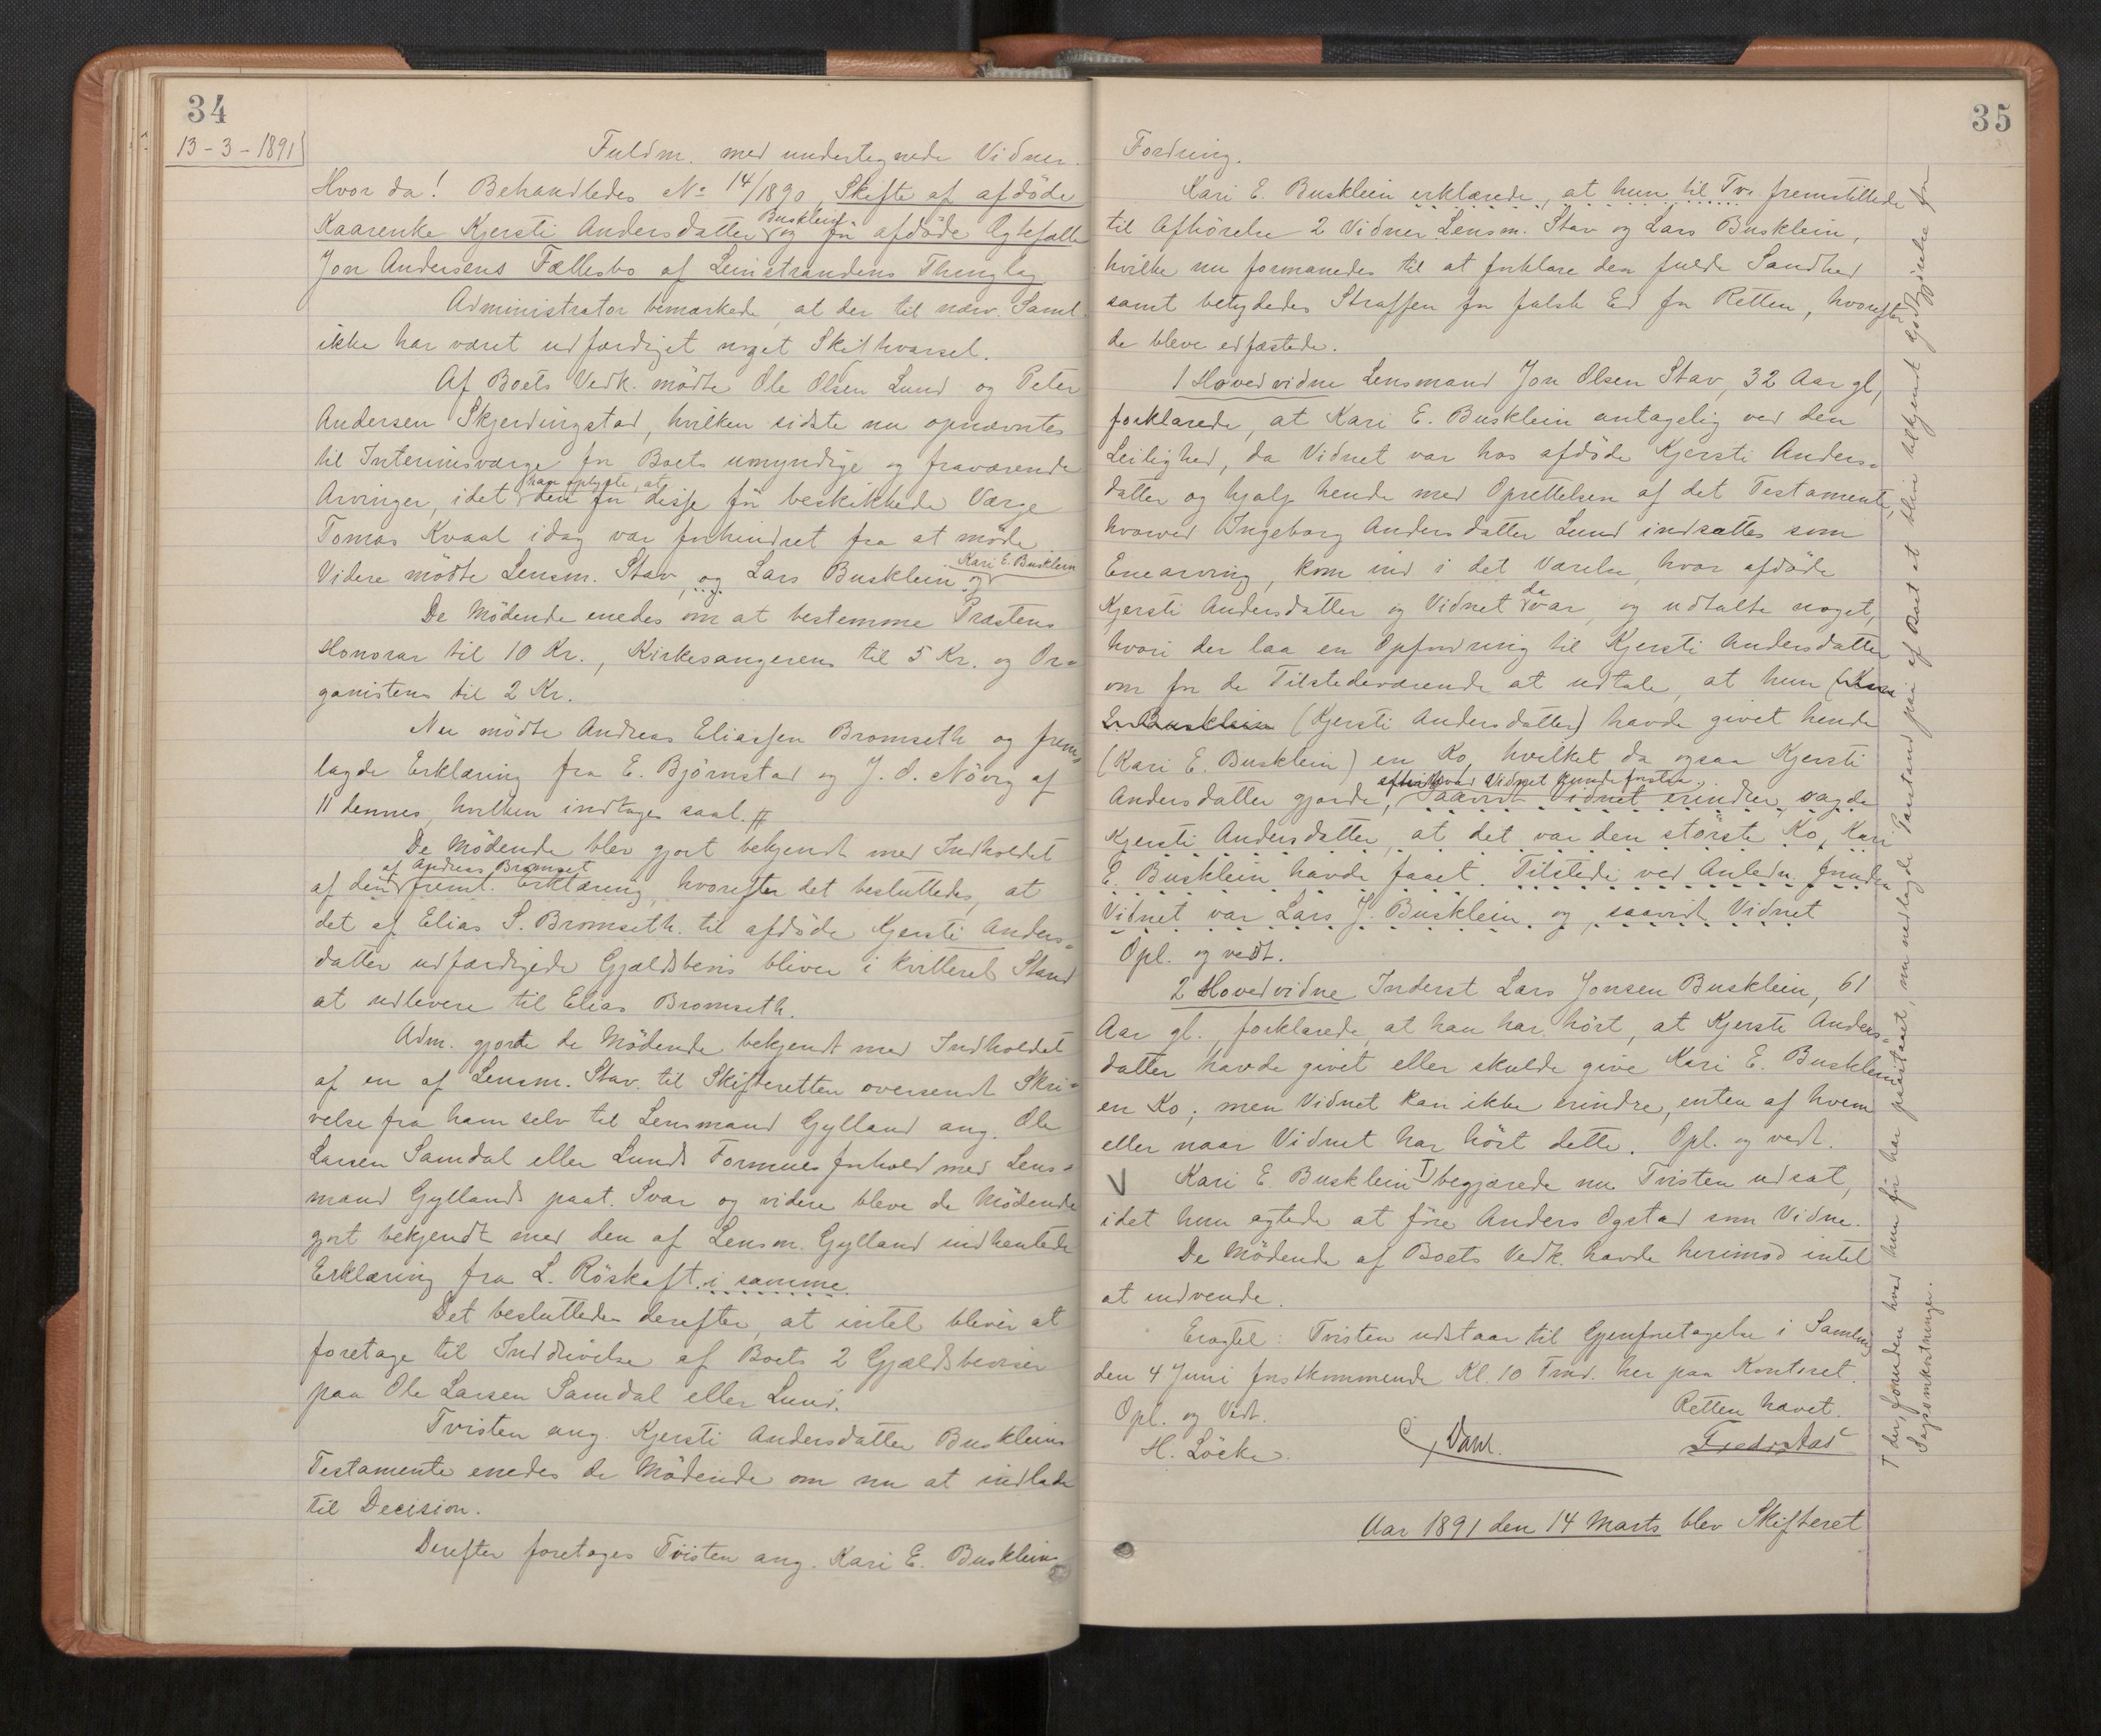 34
13-3-1891
Fuldm. med undertegnede Vidner.
Hvor da! Behandledes No 14/1890, Skifte af afdöde
Kaarenke Kjersti Andersdatter Busklein og för afdöde Ægtefælle
Jon Andersens Fællesbo af Leinstrandens Thinglag
Administrator bemærkede, at der til nærv. Saml.
ikke har været udfærdiget noget Skiftvarsel.
Af Boets Vedk. mödte Ole Olsen Lund og Peter
Andersen Skjerdingstad, hvilken sidste nu opnævntes
til Interimsværge for Boets umyndige og fraværende
Arvinger, idet han oplyste, at den for disse för beskikkede Værge
Tomas Kvaal idag var forhindret fra at möde
Videre mödte Lensm. Stav, og Lars Busklein og Kari E. Busklein
De Mödende enedes om at bestemme Præstens
Honorar til 10 Kr., Kirkesangerens til 5 Kr. og Or=
ganistens til 2 Kr.
Nu mödte Andreas Eliassen Bromseth og frem=
lagde Erklæring fra E. Björnstad og J. O. Növig af
11 dennes, hvilken indtages saal. #
De Mödende blev gjort bekjendt med Indholdet
af den af Andreas Bromset freml. Erklæring, hvorefter det besluttedes, at
det af Elias S. Bromseth til afdöde Kjersti Anders=
datter udfærdigede Gjældsbevis bliver i kvitteret Stand
at udlevere til Elias Bromseth.
Adm. gjorde de Mödende bekjendt med Indholdet
af en af Lensm. Stav til Skifteretten oversendt Skri=
velse fra ham selv til Lensmand Gylland ang. Ole
Larsen Samdal eller Lunds Formuesforhold med Lens=
mand Gyllands paat. Svar og videre bleve de Mödende
gjort bekjendt med den af Lensm. Gylland indhentede
Erklæring fra L. Röskaft i samme.
Det besluttedes derefter, at intet bliver at
foretage til Inddrivelse af Boets 2 Gjældsbeviser
paa Ole Larsen Samdal eller Lund.
Tvisten ang. Kjersti Andersdatter Buskleins
Testamente enedes de Mödende om nu at indlade
til Decision.
Derefter foretages Tvisten ang. Kari E. Buskleins
35
Fordring.
Kari E. Busklein erklærede, at hun til Tvi. fremstillede
til Afhörelse 2 Vidner Lensm. Stav og Lars Busklein,
hvilke nu formanedes til at forklare den fulde Sandhed
samt betydedes Straffen for falsk Ed for Retten, hvorefter
de bleve edfæstede.
1 Hovedvidne Lensmand Jon Olsen Stav, 32 Aar gl,
forklarede, at Kari E. Busklein antagelig ved den
Leilighed, da Vidnet var hos afdöde Kjersti Anders=
datter og hjalp hende med Oprettelsen af det Testamente,
hvorved Ingeborg Andersdatter Lund indsattes som
Enearving, kom ind i det Værelse, hvor afdöde
Kjersti Andersdatter og Vidnet da var, og udtalte noget,
hvori der laa en Opfordring til Kjersti Andersdatter
om for de Tilstedeværende at udtale, at hun (Kari
E. Busklein (Kjersti Andersdatter) havde givet hende
(Kari E. Busklein) en Ko, hvilket da ogsaa Kjersti
Andersdatter gjorde, efter hvad Vidnet kunde forstaa. saavidt Vidnet erindrer, sagde
Kjersti Andersdatter, at det var den störste Ko, Kari
E. Busklein havde faaet. Tilstede ved Anledn. foruden
Vidnet var Lars J. Busklein og, saavidt Vidnet
Opl. og vedt.
2 Hovedvidne Inderst Lars Jonsen Busklein, 61
Aar gl., forklarede, at han har hört, at Kjersti Anders=
datter havde givet eller skulde give Kari E. Busklein
en Ko; men Vidnet kan ikke erindre, enten af hvem
eller naar Vidnet har hört dette. Opl. og vedt.
V Kari E. Busklein T begjærede nu Tvisten udsat,
idet hun agtede at före Anders Ogstad som Vidne.
De Mödende af Boets Vedk. havde herimod intet
at indvende.
Eragtet: Tvisten udstaar til Gjenforetagelse i Samling
den 4 Juni förstkommende Kl. 10 Fmd. her paa Kontoret.
Opl. og Vedt.
Retten hævet.
H. Löcke.
Aar 1891 den 14 Marts blev Skifteret
T der, foruden hvad hun för har paastaaet, nu nedlagde Paastand paa af Boet at blive tilkjent godtgjörelse for
Sagsomkostninger.